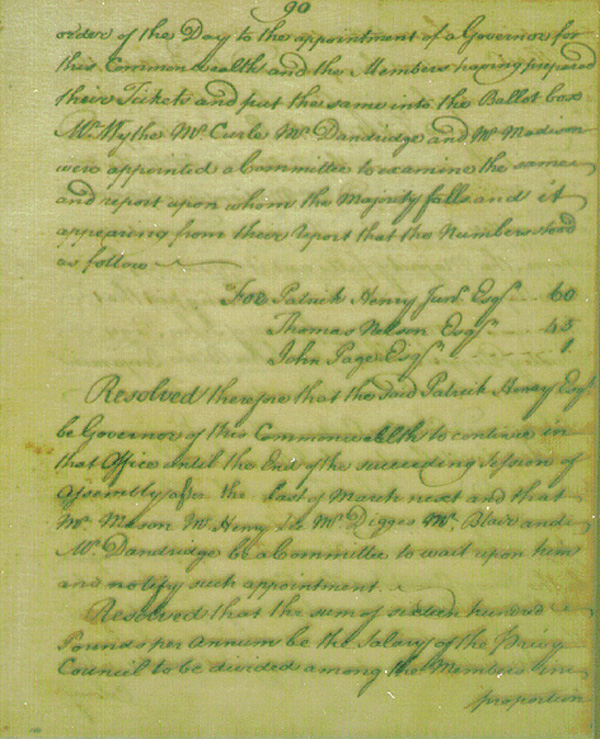 90
order of the Day to the appointment of a Governor for
this Commonwealth and the Members having prepared
their Tickets and put the same into the Ballot box
Mr. Wythe Mr. Curle Mr. Dandridge and Mr. Madison
were appointed a Committee to examine the same
and report upon whom the Majority falls and it
appearing from their report that the Numbers stood
as follow
For Patrick Henry Junr. Esqr. 60
Thomas Nelson Esqr. 45
John Page Esqr. 1
Resolved therefore that the said Patrick Henry Esqr.
be Governor of this Commonwealth to continue in
that Office until the End of the succeeding Session of
Assembly after the last of March next and that
Mr. Mason Mr. Henry Lee Mr. Digges Mr. Blair and
Mr. Dandridge be a Committee to wait upon him
and notify such appointment.
Resolved that the sum of sixteen hundred
Pounds per Annum be the Salary of the Privy
Council to be divided among the Members in
proportion